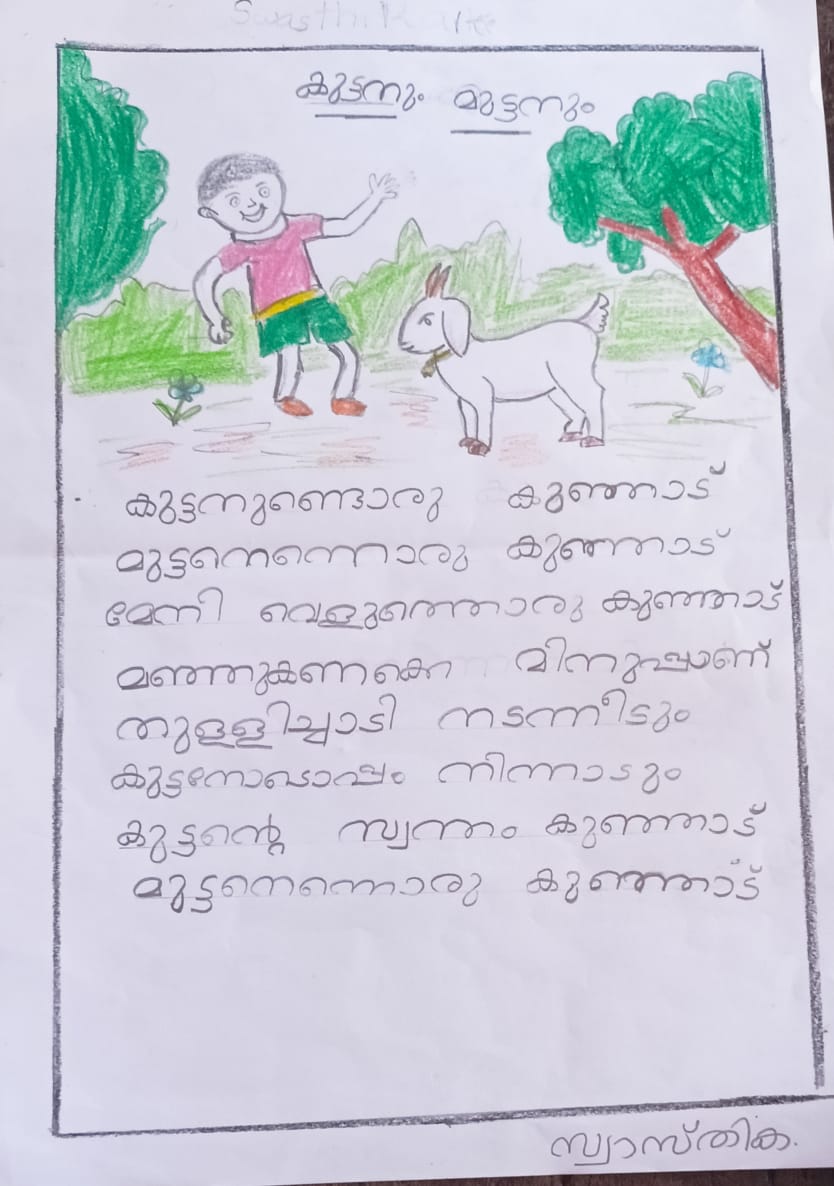 കുട്ടനും മുട്ടനും
കുട്ടനുണ്ടൊരു കുഞ്ഞാട്
മുട്ടനെന്നൊരു കുഞ്ഞാട്
മേനി വെളുത്തൊരു കുഞ്ഞാട്
മഞ്ഞുകണക്കെ മിനുപ്പാണ്
തുള്ളിച്ചാടി നടന്നീടും
കുട്ടനോടൊപ്പം നിന്നാടും
കുട്ടന്റെ സ്വന്തം കുഞ്ഞാട്
മുട്ടനെന്നൊരു കുഞ്ഞാട്
സ്വാസ്തിക.